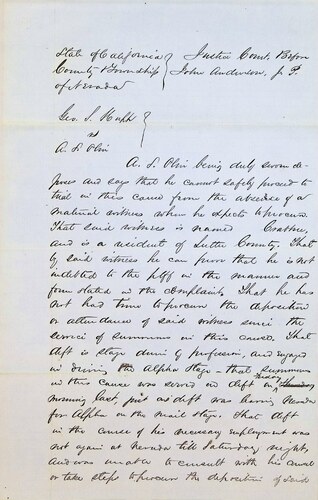 State of California } Justice Court, Before
County & Township } John Anderson, J. P.
of Nevada
Geo. S. Hupp }
vs
A. L. Olin
A. L. Olin being duly sworn de-
poses and says that he cannot safely proceed to
trial in this cause from the absence of a
material witness whom he expects to procure
That said witness is named Crathre,
and is a resident of Sutter County. That
by said witness he can prove that he is not
indebted to the plff in the manner and
form stated in the Complaint, That he has
not had time to procure the deposition
or attendance of said witness since the
service of summons in this cause. That
deft is stage driver by profession, and engaged
in driving the Alpha Stage - that summons
in this cause was served on deft on
morning last, just as deft was leaving Nevada
for Alpha on the mail stage. That deft
in the course of his necessary employment was
not again at Nevada till Saturday night,
and was unable to consult with his counsel
or take steps to procure the deposition of said